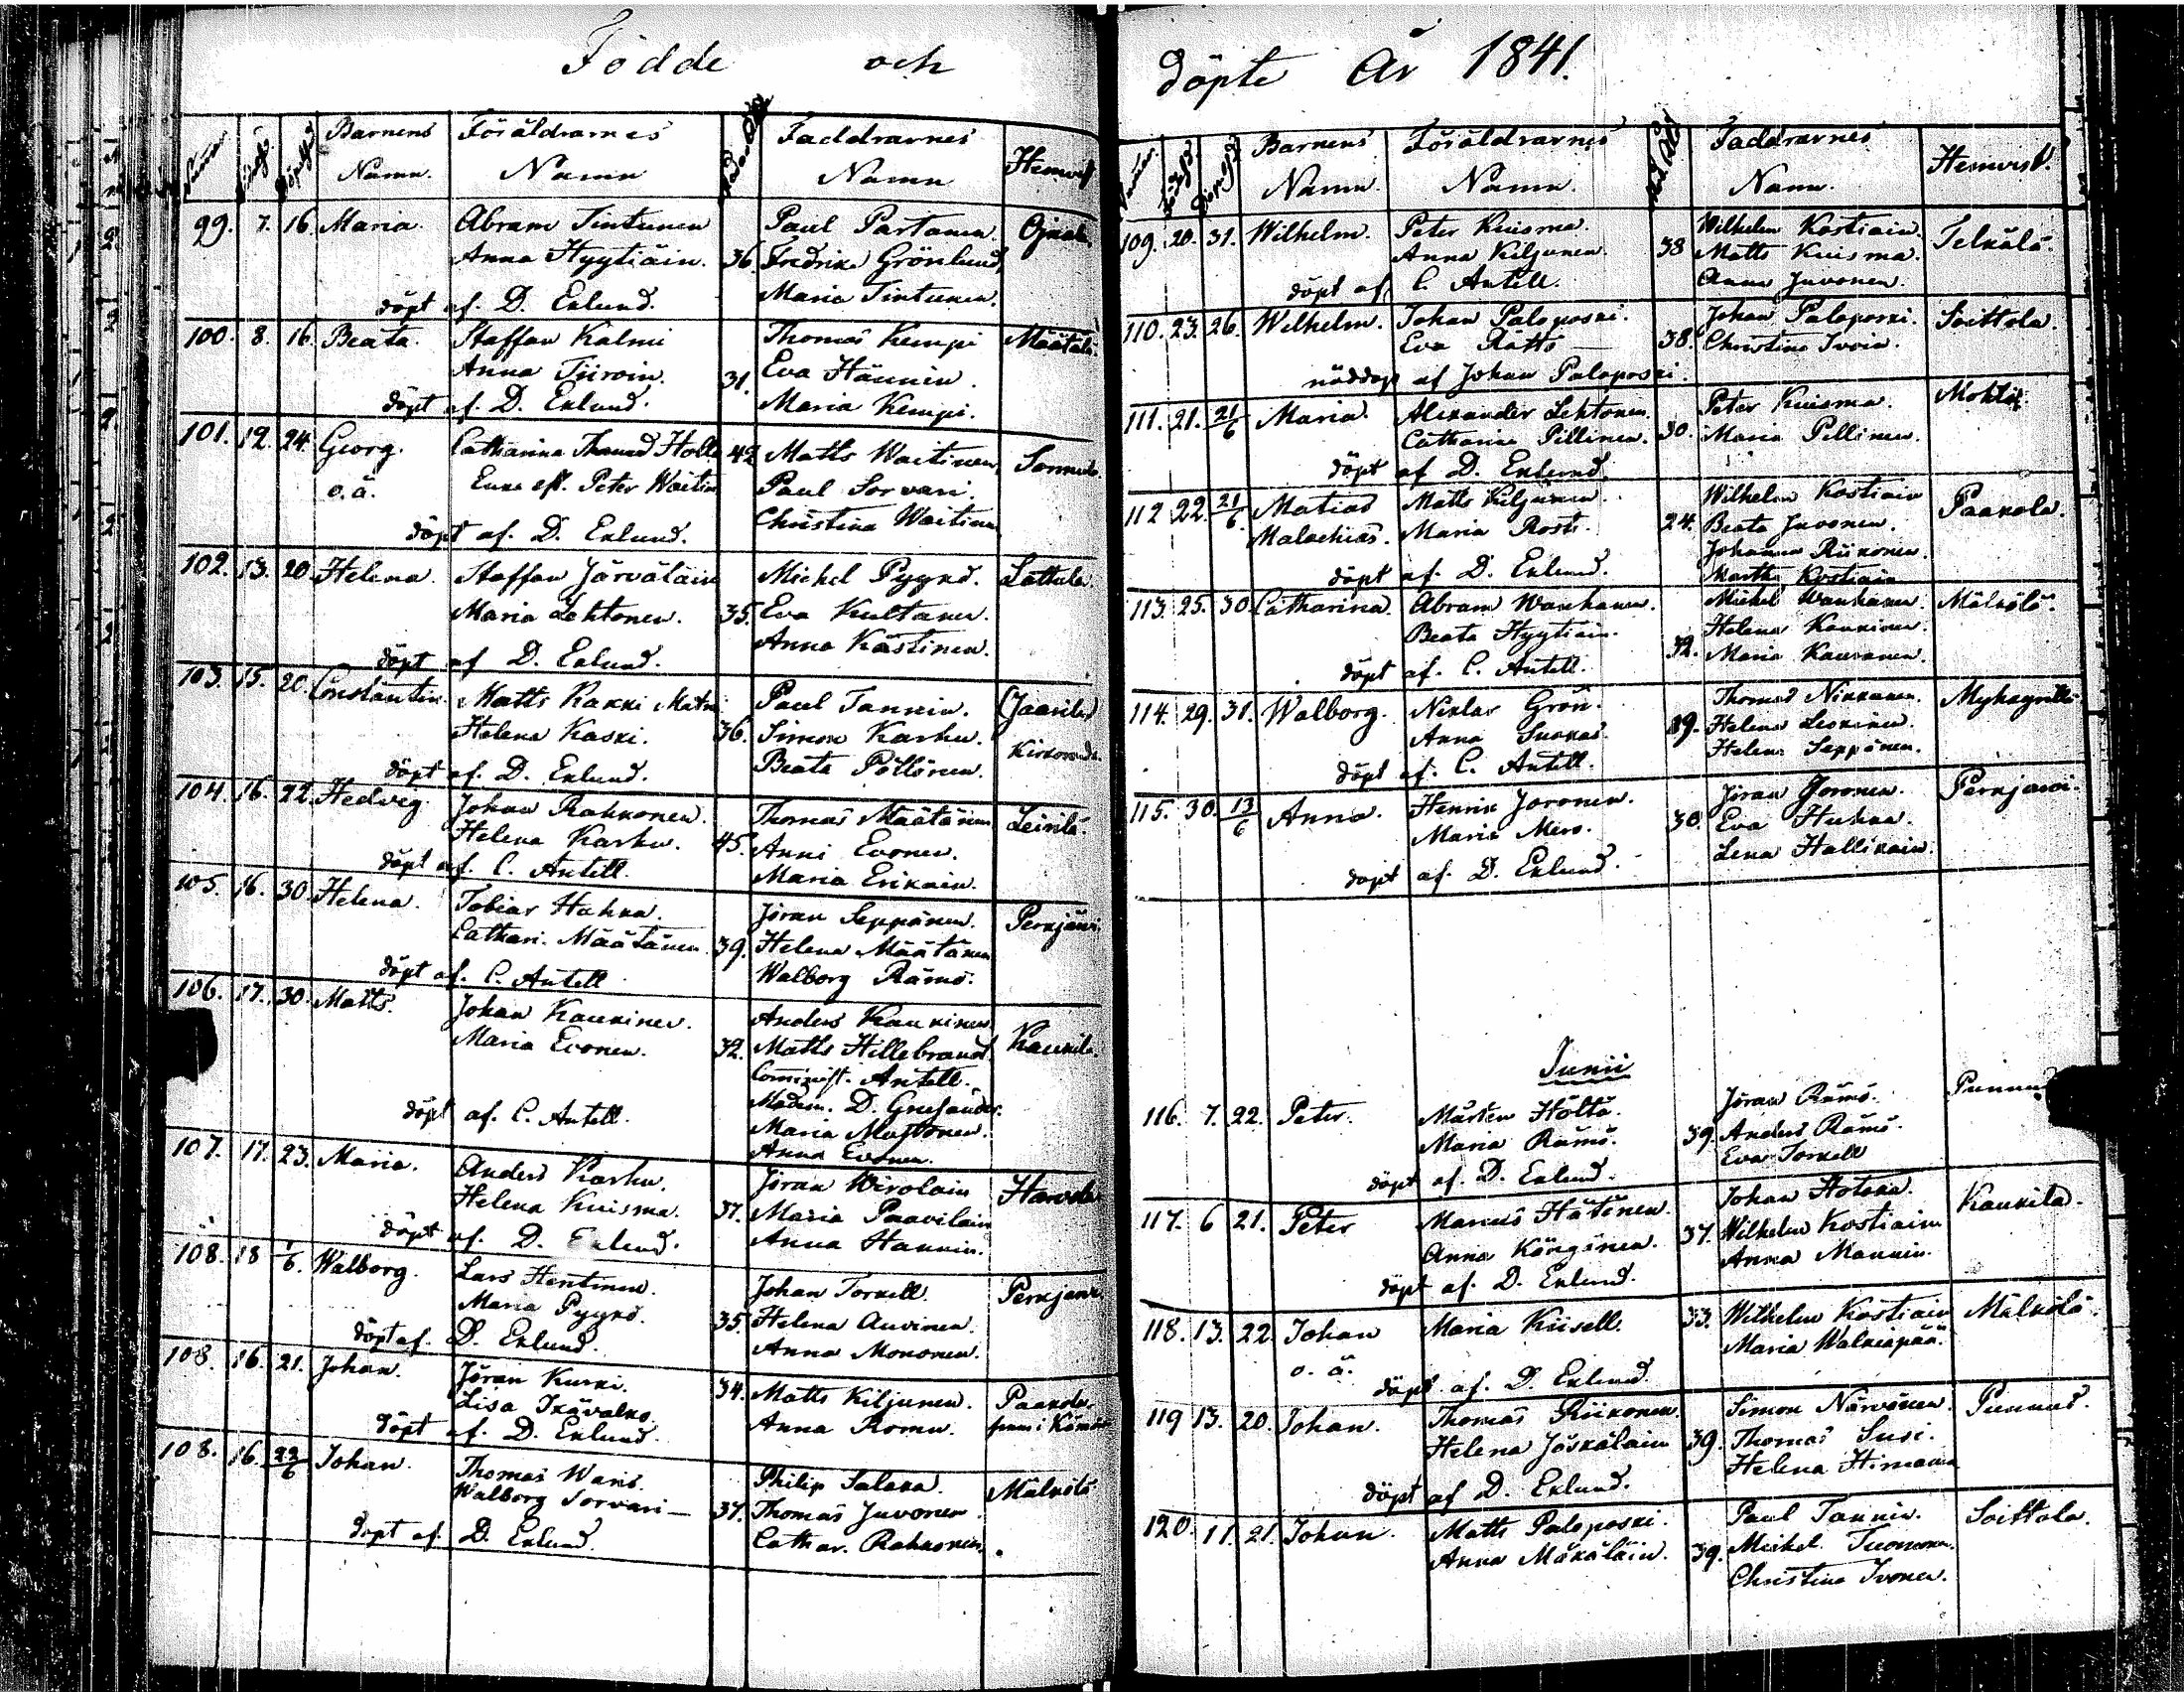 Födde och
Barnens Namn. Föräldrarnes Namn Faddrarnes Namn Hemvist
99. 7. 16. Maria. Abram Tintunen Paul Partanen. Ojaala.
Anna Hyytiäin. 36. Fredrika Grönlund,
döpt af. D. Eklund. Maria Tintunen.
100. 8. 16. Beata. Staffan Kalmi Thomas Kempi Määtälä.
Anna Tiiroin. 31. Eva Hännin.
döpt af. D. Eklund. Maria Kempi.
101. 12. 24. Georg. Catharina Thomasd Holtt 42 Matts Waitinen,
o.ä. Enka eft. Peter Waitin Paul Sorvari.
döpt af. D. Eklund. Christina Waitinen
102. 13. 20 Helena. Staffan Järväläin Michel Pyykö. Lattula.
Maria Lehtonen. 35. Eva Kultanen.
döpt af D. Eklund. Anna Kästinen.
103. 15. 20. Constantin. Matts Kakki Paul Tannin. (Jaarila)
Helena Kaski. 36. Simon Karhu.
döpt af. D. Eklund. Beata Pöllönen.
104. 16. 22. Hedvig. Johan Rahkonen. Thomas Määtänen Leinilä.
Helena Karhu. 45. Anni Evonen.
döpt af. C. Antell. Maria Erikain.
105. 16. 30 Helena. Tobias Huhka. Jöran Seppänen. Perkjärvi.
Cathari. Määtänen. 39. Helena Määtänen
döpt af. C. Antell Walborg Rämö.
106. 17. 30. Matts. Johan Kaukinen. Anders Kaukinen, Kaukila.
Maria Evonen. 32. Matts Hillebrandt.
Antell.
Madem. D.
döpt af. C. Antell. Maria Mustonen.
Anna Evonen.
107. 17. 23. Maria. Anders Karhu. Jöran Wirolain
Helena Kuisma. 37. Maria Paavilain
döpt af. D. Eklund. Anna Hannin.
108. 18 1/6. Walborg. Lars Hentinen. Johan Torkell. Perkjärvi.
Maria Pyykö. 35. Helena Auvinen.
döpt af. D. Eklund. Anna Mononen.
108. 16. 21. Johan. Jöran Kurki. 34. Matts Kiljunen. Paakola.
Lisa Ikävalko. Anna Romu.
döpt af. D. Eklund.
108. 16. 22/6 Johan. Thomas Waris. Philip Salaka. Mälkölä
Walborg Sorvari 37. Thomas Juvonen
döpt af. D. Eklund. Cathar. Rahkonen.
döpte År 1841.
Barnens Namn. Föräldrarnes Namn. Faddrarnes Namn. Hemvist.
109. 20. 31. Wilhelm. Peter Kuisma. Wilhelm Kostiain. Telkälä.
Anna Kiljunen. 38 Matts Kuisma.
döpt af C. Antell. Anna Juvonen.
110. 23. 26. Wilhelm. Johan Paloposki. Johan Paloposki. Soittola.
Eva Rätto 38. Christina Ivoin.
nöddop af Johan Paloposki.
111. 21. 21/6 Maria. Alexander Lehtonen. Peter Kuisma.
Catharina Pillinen. 30. Maria Pellinen.
döpt af D. Eklund.
112 22. 21/6. Matias Matts Kiljunen. Wilhelm Kostiain Paakola.
Malachias. Maria Rosti. 24. Beata Juvonen.
Johanna Riikonen.
döpt af. D. Eklund. Martha Kostiain
113. 25. 30. Catharina. Abram Wanhanen. Michel Wanhanen. Mälkölä.
Beata Hyytiäin. Helena Kaukinen.
döpt af. C. Antell. 32. Maria Kauranen.
114. 29. 31. Walborg. Niklas Grön. Thomas Nikkanen.
Anna Suokas. 19. Helena Leskinen.
döpt af. C. Antell. Helena Seppänen.
115. 30. 13/6 Anna. Henrik Joronen. Jöran Joronen. Perkjärvi.
Maria Miro. 30. Eva Huhka.
döpt af. D. Eklund. Lena Hallikain.
Junii
116. 7. 22. Peter. Mårten Höltö. Jöran Rämö. Punnus
Maria Rämö. 39. Anders Rämö.
döpt af. D. Eklund. Eva Torkell
117. 6 21. Peter Marcus Hätönen. Johan Hotoka. Kaukila.
Anna Köngönen. 37. Wilhelm Kostiain
döpt af. D. Eklund. Anna Mannin.
118. 13. 22 Johan Maria Kiisell. 33. Wilhelm Kostiain Mälkölä.
o. ä. Maria Walkiapää.
döpt af. D. Eklund.
119 13. 20. Johan. Thomas Riikonen. Simon Närvänen. Punnus.
Helena Jäskäläin 39. Thomas Susi.
döpt af D. Eklund. Helena Himanen
120. 11. 21. Johan. Matts Paloposki. Paul Tannin. Soittola.
Anna Mäkäläin. 39. Michel Tuomonen.
Christina Ivonen.